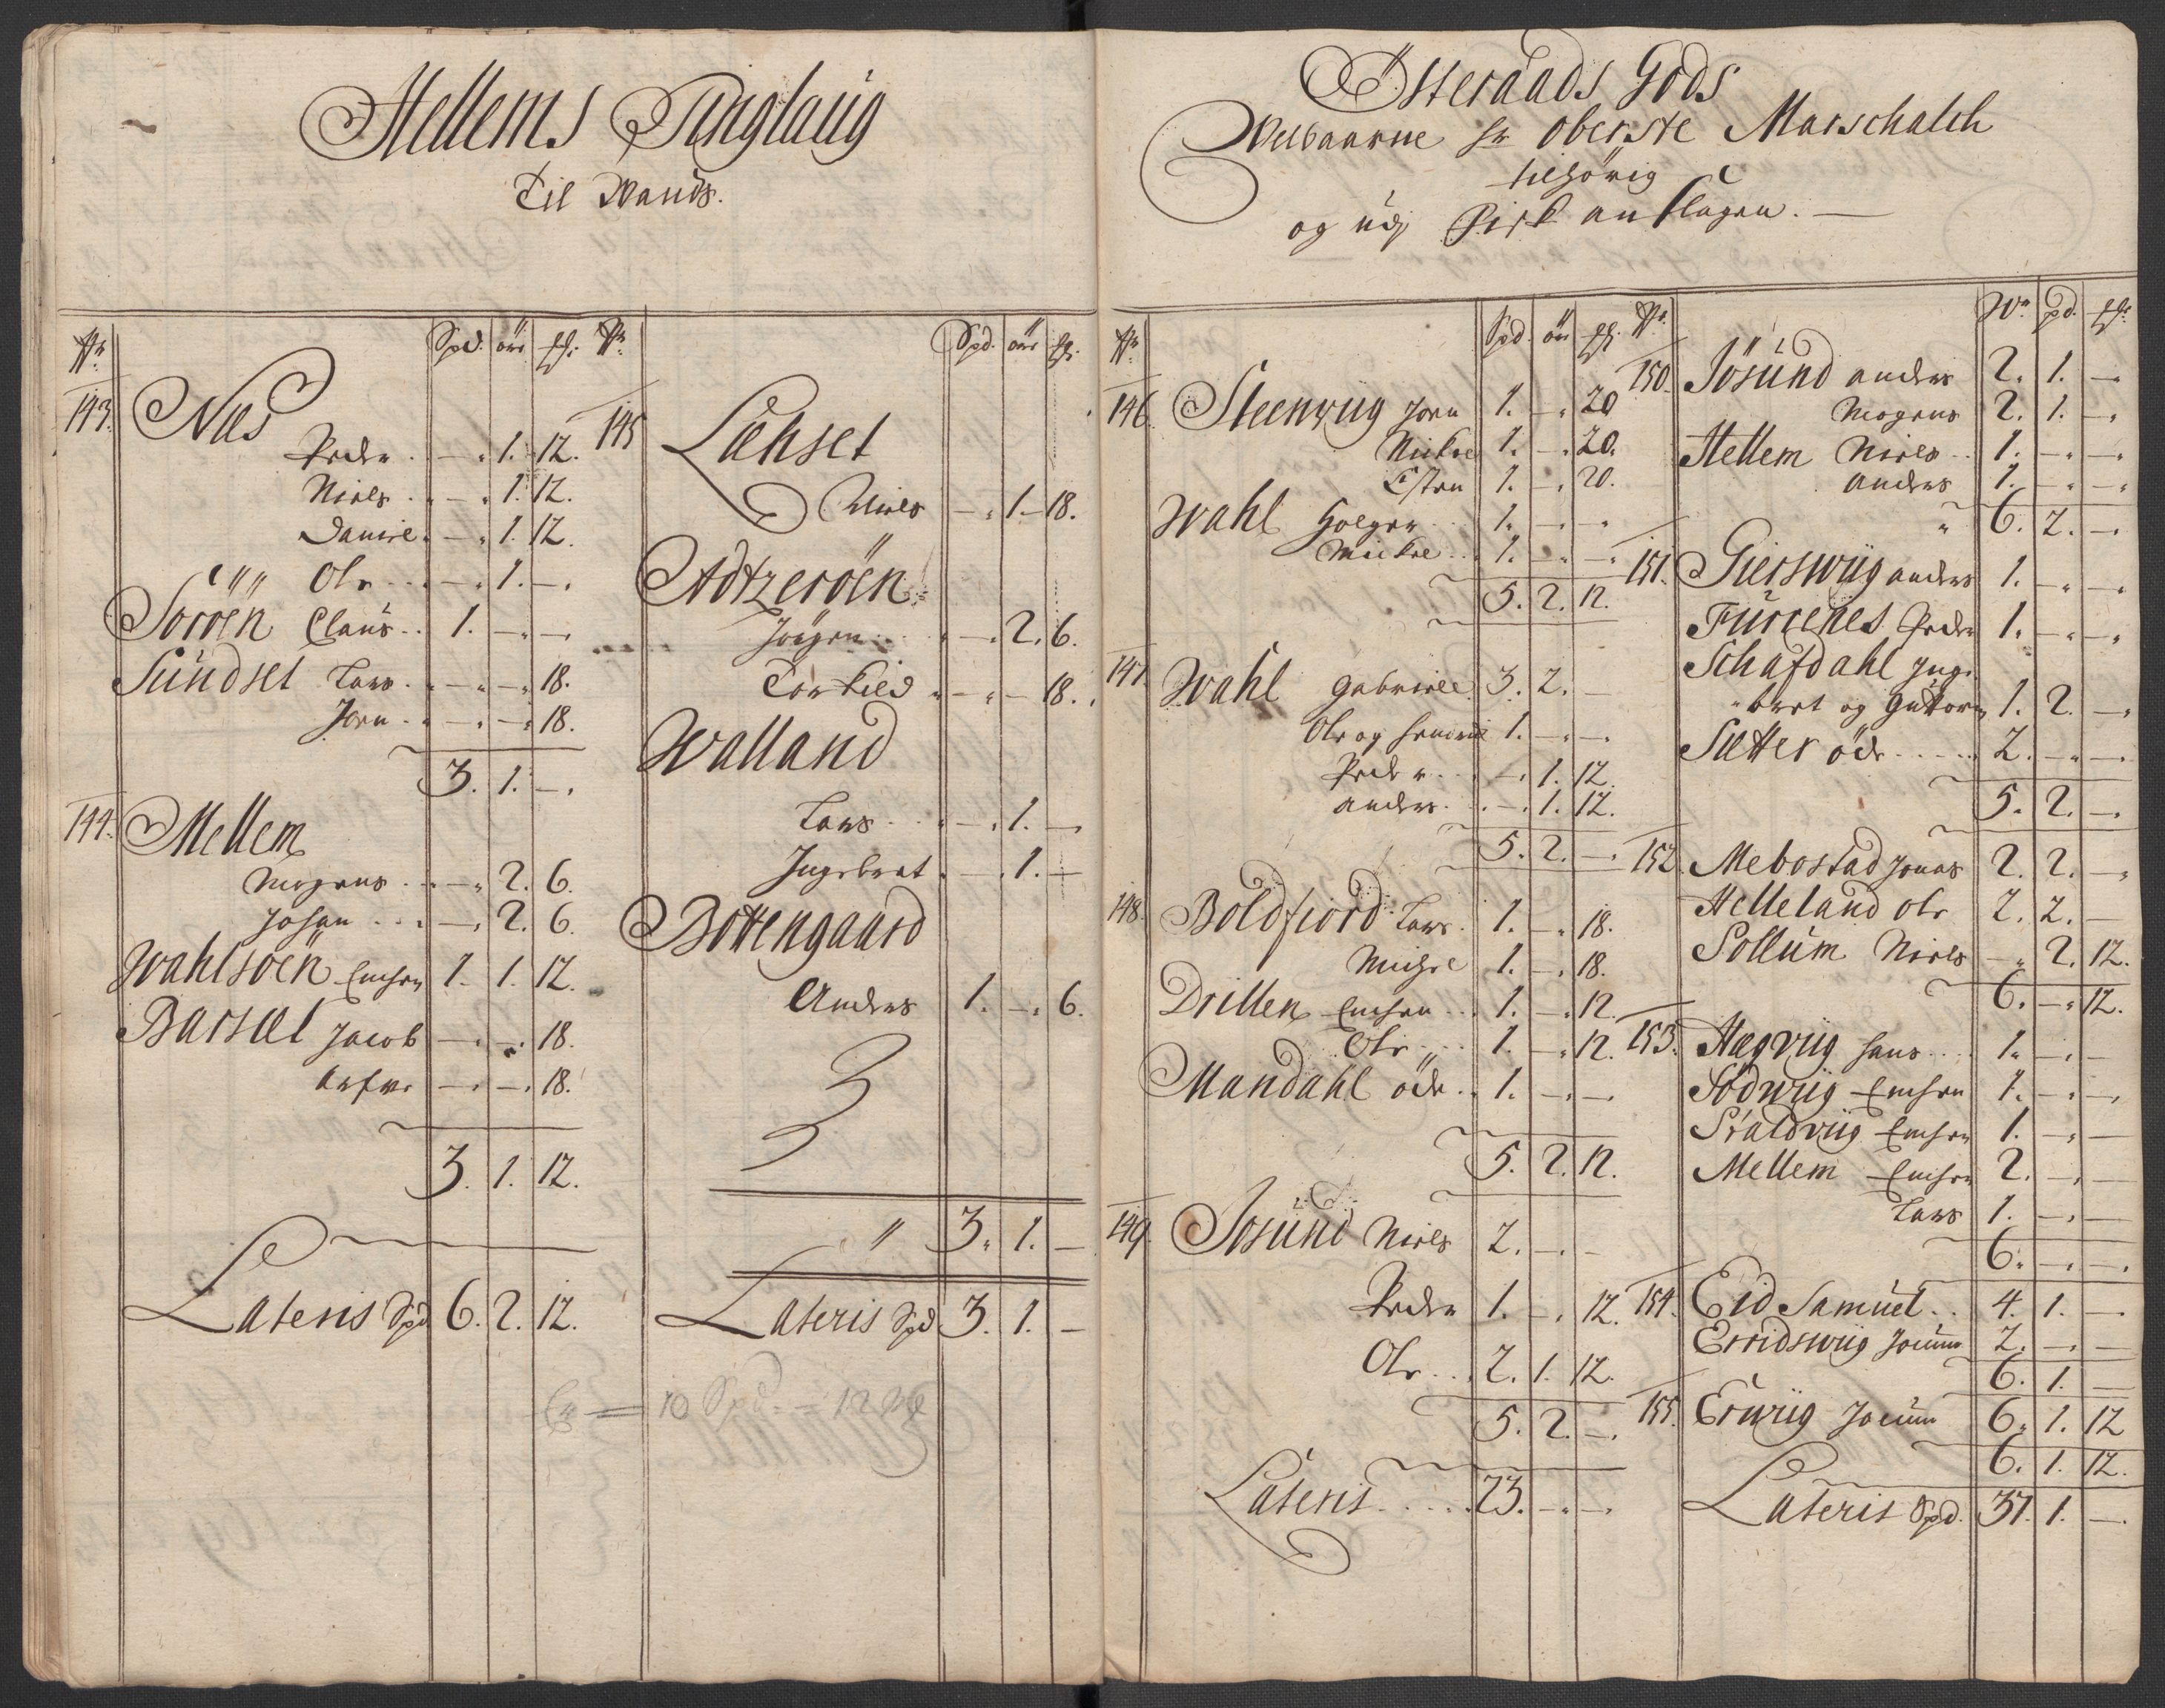 Mellems Tinglaug
Til Mands.
Nr. Spd. öre ß.
143. Næs
Peder . . — . 1. 12.
Niels . . — . 1. 12.
Daniel . — . 1. 12.
Ole . . . — . 1. — .
Soröen Claus . . 1. — . — .
Sundset Lars . . — . — . 18.
Jon . . — . — . 18.
3. 1. — .
144. Mellem
Mogens . . — . 2. 6.
Johan . . . — . 2. 6.
Wahlsöen Eensen 1. 1. 12.
Barsæt Jacob — . — . 18.
— . — . 18.
3. 1. 12.
Lateris Spd 6. 2. 12.
Nr. Spd. öre ß.
145 Læhset
Niels — . 1. — 18.
Adtzeröen
Jörgen . . . . — . 2. 6.
Torkild . — . — 18.
Walland
Lars . . . — . 1. —
Ingebret . — . 1. —
Bottengaard
Anders 1. — . 6.
" 3. 1. —
Lateris Spd 3. 1. —
10 Spd. = 12
Österaads Gods
Welbaarne Hr Oberste Marschalch
tilhörig
og udj Fisk anslagen. —
Nr. Spd. öre ß.
146. Steenwiig Jon 1. — . 20
Mickel 1. — . 20.
Esten 1. — . 20.
Wahl Holger . . 1. — . — .
Mickel . . 1. — . — .
5. 2. 12.
147 Wahl Gabriel 3. 2. —
Ole og Hendrik 1. — . — .
Peder . . . — . 1. 12.
Anders . . — . 1. 12.
5. 2. — .
148. Boldfiord Lars . 1. — . 18.
Michel 1. — . 18.
Drillen Eensen . . 1. — . 12.
Ole . . . 1. — . 12.
Mandahl öde . . 1. — . — .
5. 2. 12.
149. Josund Niels 2. — . —
Peder 1. — . 12.
Ole . . . 2. 1. 12.
5. 2. — .
Lateris . . . . . 23. — . — .
Nr. W. pd. ß.
150. Jösund Anders 2. 1. — .
Mogens 2. 1. — .
Mellem Niels . . 1. — . — .
Anders 1. — . — .
" 6. 2. — .
151. Gierswiig Anders 1. — . — .
Fürrenes Peder 1. — . — .
Schafdahl Inge-
bret og Guttorm 1. 2. — .
Sætter öde . . . . . 2. — . — .
5. 2. — .
152 Mebostad Jonas 2. 2. — .
Helleland Ole 2. 2. —
Sollum Niels — . 2. 12.
6. — . 12.
153. Hegviig Hans . . . 1. — . —
Södwiig Eensen 1. — . — .
Straldviig Eensen 1. — . —
Mellem Eensen 2. — . —
Lars 1. — . —
6. — . — .
154. Eid Samuel . . 4. 1. — .
Erridswiig Jocum 2. — . —
6. 1. —
155. Erwiig Jocum 6. 1. 12
6. 1. 12.
Lateris Spd. 37. 1. — .